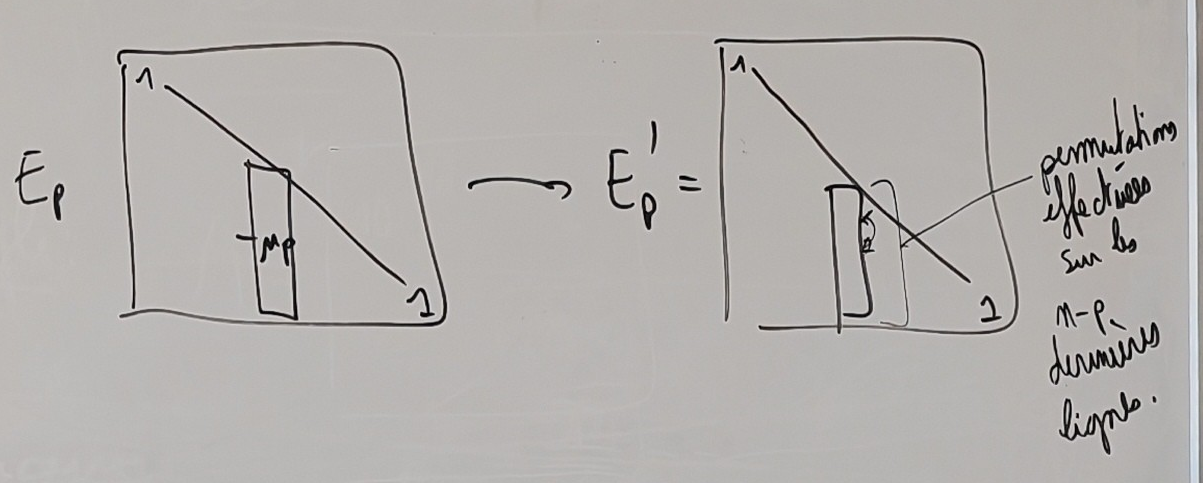 1
E_p
-μ_p
1
→ E'_p =
1
1
permutations
effectuées
sur les
n-p
dernières
lignes.